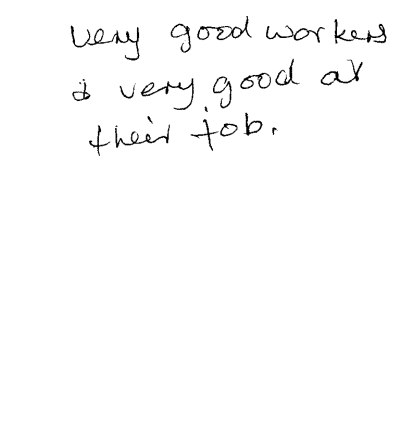 very good workers
& very good at
their job.